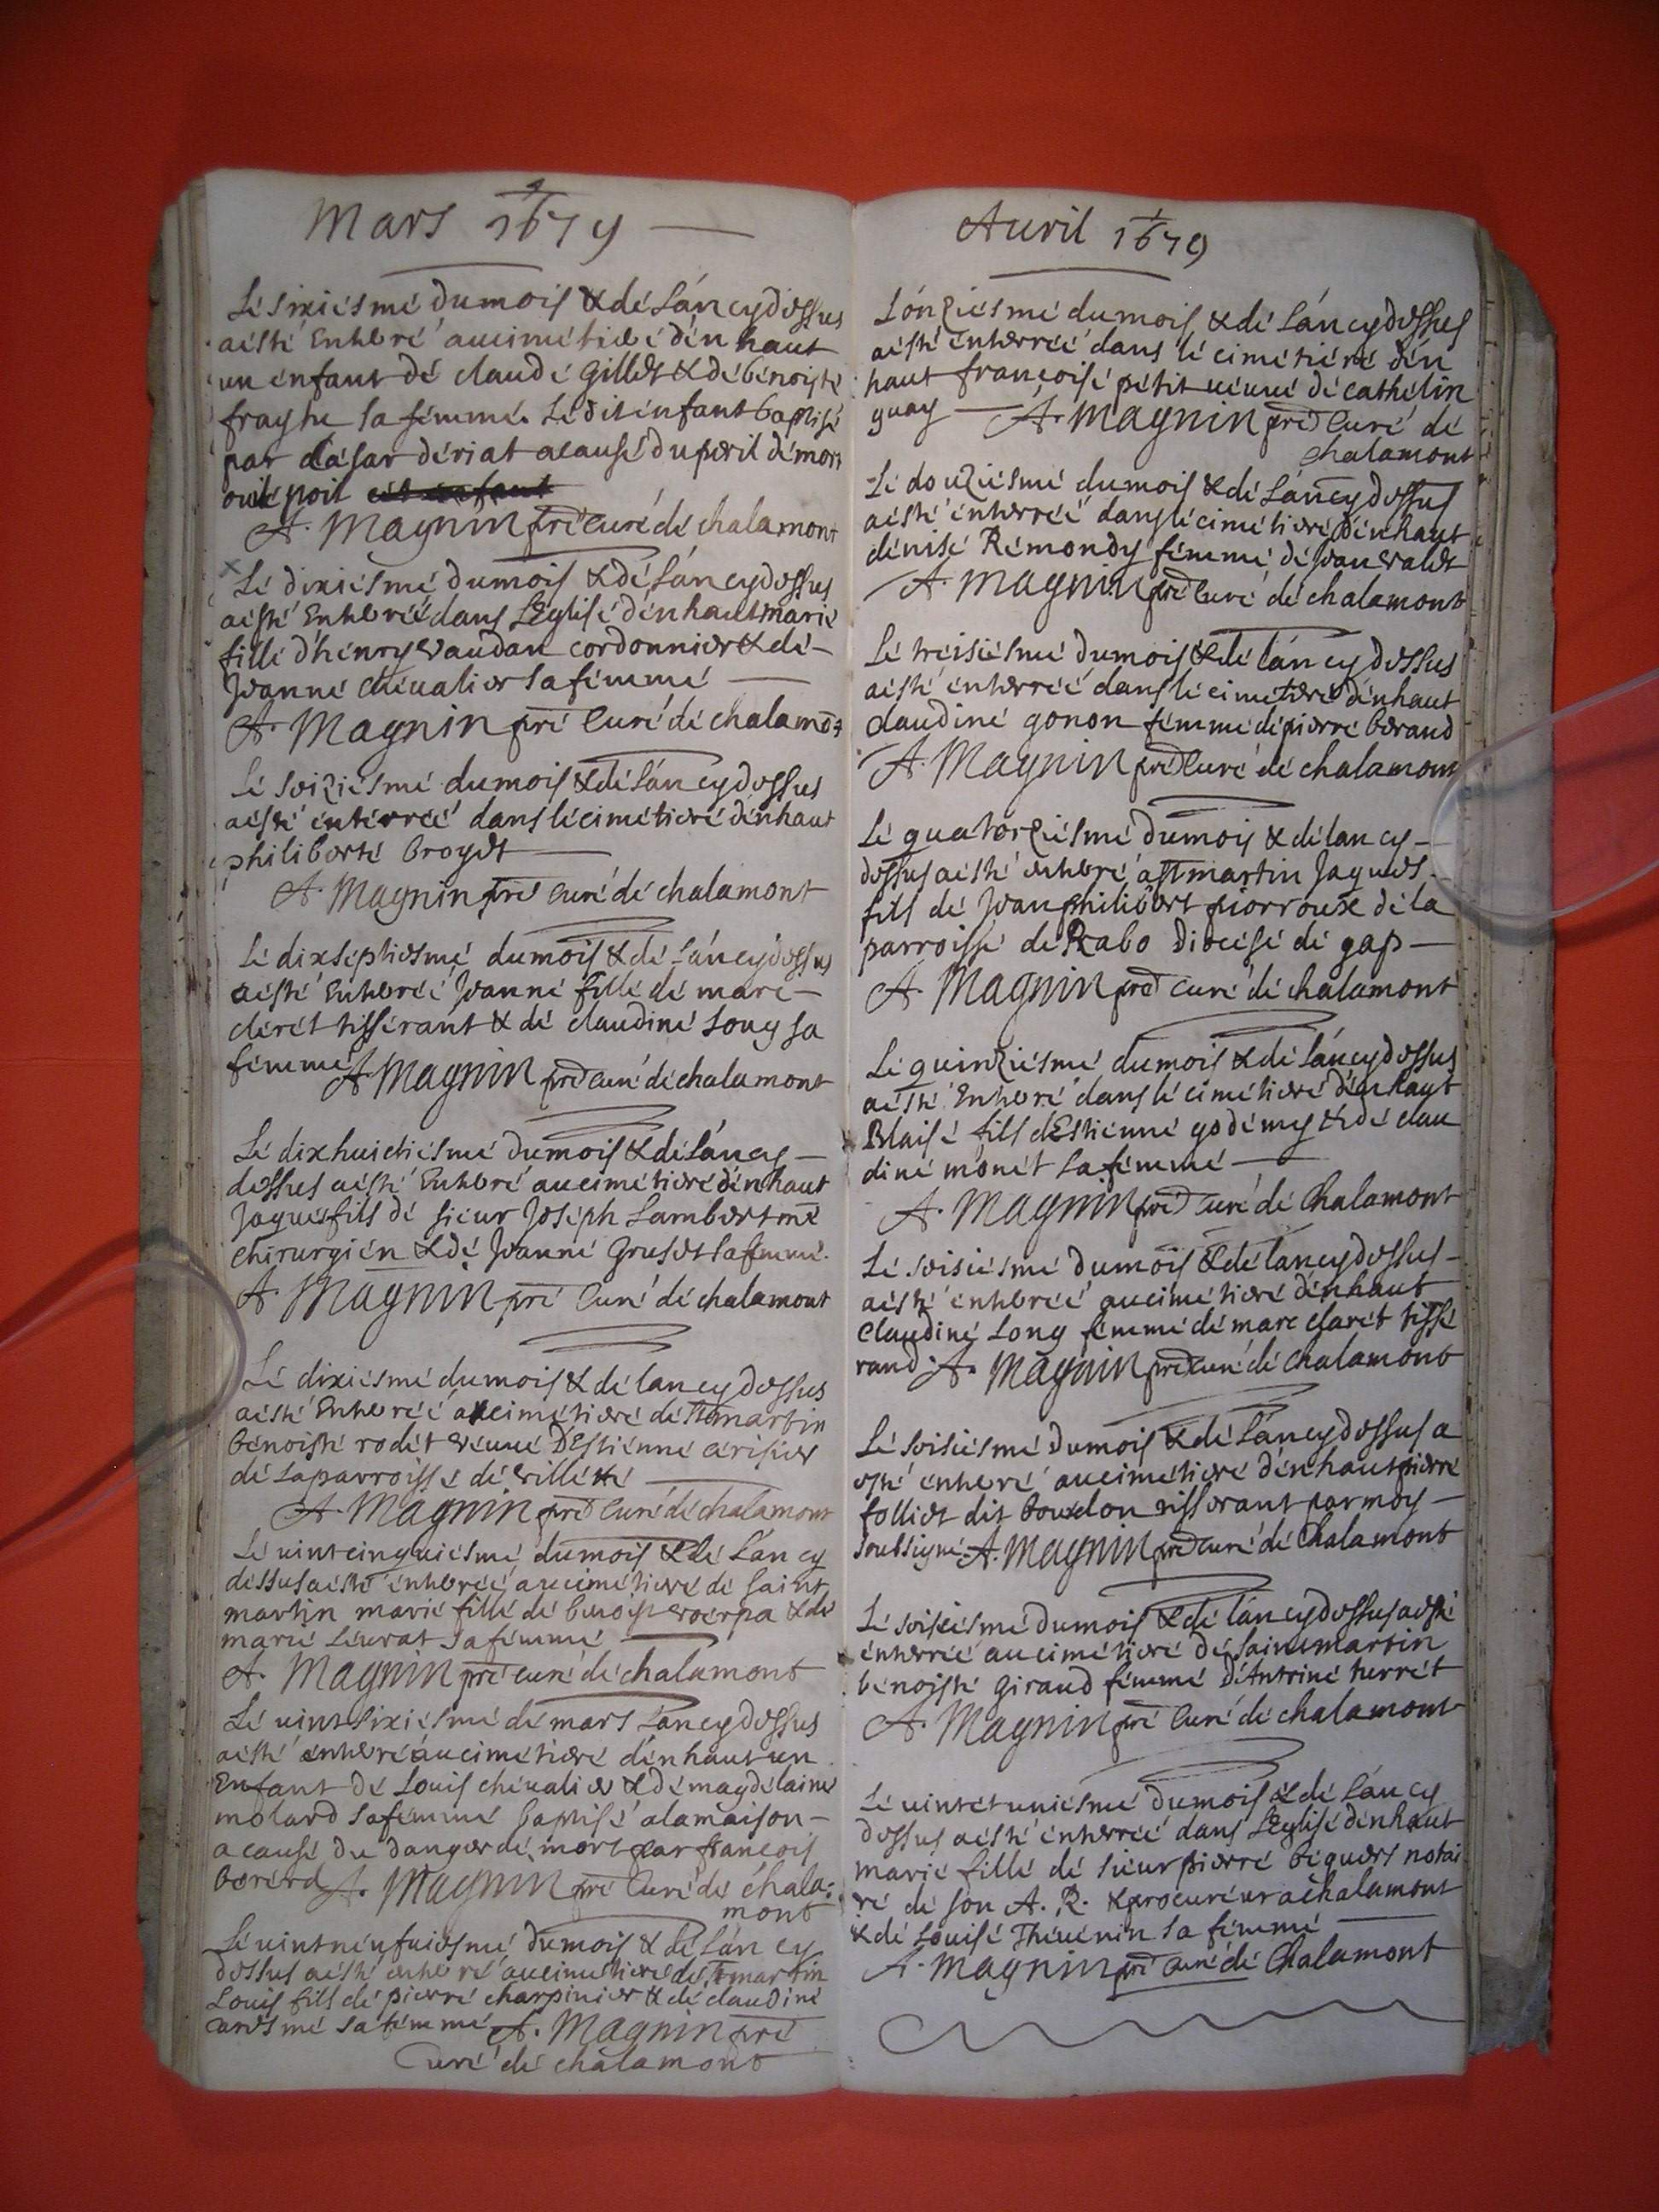 Mars 1679
Le sixiesme du mois & de l'an cy dessus
a esté enterré au cimetiere d'en haut
un enfant de claude Gillet & de benoiste
fraghe sa femme. Ledit enfant baptisé
par deriat a cause du peril de mort
A. Magnin pre curé de chalamont
Le dixiesme du mois & de l'an cy dessus
a esté enterrée dans l'Eglise d'en haut marie
fille d'henry vaudan cordonnier & de
Jeanne chevalier sa femme
A. Magnin pre Curé de chalamōt
Le seiziesme du mois & de l'an cy dessus
a esté enterrée dans le cimetiere d'en haut
philiberte broyet
A. Magnin pre Curé de chalamont
Le dixseptiesme du mois & de l'an cy dessus
a esté enterrée Jeanne fille de marc
cleret tisserant & de claudine Long sa
femme A Magnin pre curé de chalamont
Le dixhuictiesme du mois & de l'an cy
dessus a esté enterré au cimetiere d'en haut
Jaques fils de sieur Joseph Lambert me
chirurgien & de Jeanne Gruset sa femme.
A. Magnin pre Curé de chalamont
Le dixiesme du mois & de lan cy dessus
a esté enterrée au cimetiere de St martin
benoiste rodet veuue D'Estienne cerisier
de la parroisse de villette
A. Magnin pre Curé de chalamont
Le vintcinquiesme du mois & de l'an cy
dessus a esté enterrée au cimetiere de saint
martin marie fille de benoist verpa & de
marie Leurat sa femme
A. Magnin pre curé de chalamont
Le vintsixiesme de mars l'an cy dessus
a esté enterré au cimetiere d'en haut un
Enfant de Louis chevalier & de magdelaine
molard sa femme baptisé a la maison
a cause du danger de mort par françois
bererd A. Magnin pre Curé de chala:
mont
Le vintneufuiesme du mois & de l'an cy
dessus a esté enterré au cimetiere de St martin
Louis fils de pierre charpinier & de claudine
caresme sa femme A. Magnin pre
Curé de chalamont
Auril 1679
L'onziesme du mois & de l'an cy dessus
a esté enterrée dans le cimetiere d'en
haut françoise petit veuue de cathelin
guay A. Magnin pre Curé de
chalamont
Le douziesme du mois & de l'an cy dessus
a esté enterrée dans le cimetiere d'en haut
denise Remondy femme de Jean valet
A. Magnin pre Curé de chalamont
Le treisiesme du mois & de l'an cy dessus
a esté enterrée dans le cimetiere d'en haut
claudine gonon femme de pierre beraud
A. Magnin pre Curé de chalamont
Le quatorziesme du mois & de lan cy
dessus a esté enterré a St martin Jaques
fils de Jean philibert pierroux de la
parroisse de Rabo diocese de gap
A. Magnin pre curé de chalamont
Le quinziesme du mois & de l'an cy dessus
a esté enterré dans le cimetiere d'en haut
Blaise fils d'Estienne godemy & de clau
dine monet sa femme
A. Magnin pre curé de Chalamont
Le seisiesme du mois & de lan cy dessus
a esté enterrée au cimetiere d'en haut
Claudine Long femme de marc claret tisse
rand A. Magnin pre curé de chalamont
Le seisiesme du mois & de l'an cy dessus a
esté enterré au cimetiere d'en haut pierre
folliet dit bourdon tisserant par moy
soubsigné. A. Magnin pre curé de Chalamont
Le seisiesme du mois & de l'an cy dessus a esté
enterrée au cimetiere de saint martin
benoiste Giraud femme d'Antoine terret
A. Magnin pre Curé de chalamont
Le vintetuniesme du mois & de l'an cy
dessus a esté enterrée dans l'Eglise d'en haut
marie fille de sieur pierre bequers notai
re de son A. R. & procureur a chalamont
& de Louise Theuenin sa femme
A. Magnin pre curé de Chalamont